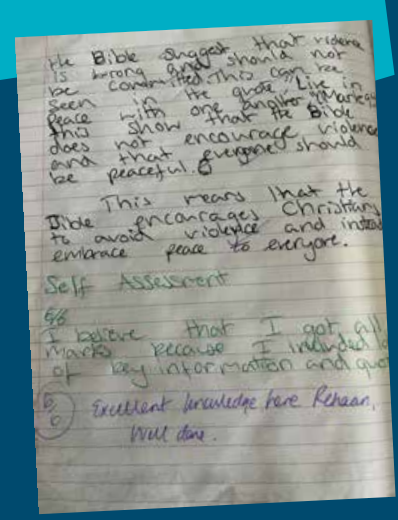 the Bible suggest that violence
is wrong and should not
be committed. This can be
seen in the quote, "Live in
peace with one another"
this show that the Bible
does not encourage violence
and that everyone should
be peaceful.
This means that the
Bible encourages Christians
to avoid violence and instead
embrace peace to everyone.
Self Assessment
6/6
I believe that I got all
marks because I included
of key information and
6/6
Excellent knowledge here Rehaan,
Well done.